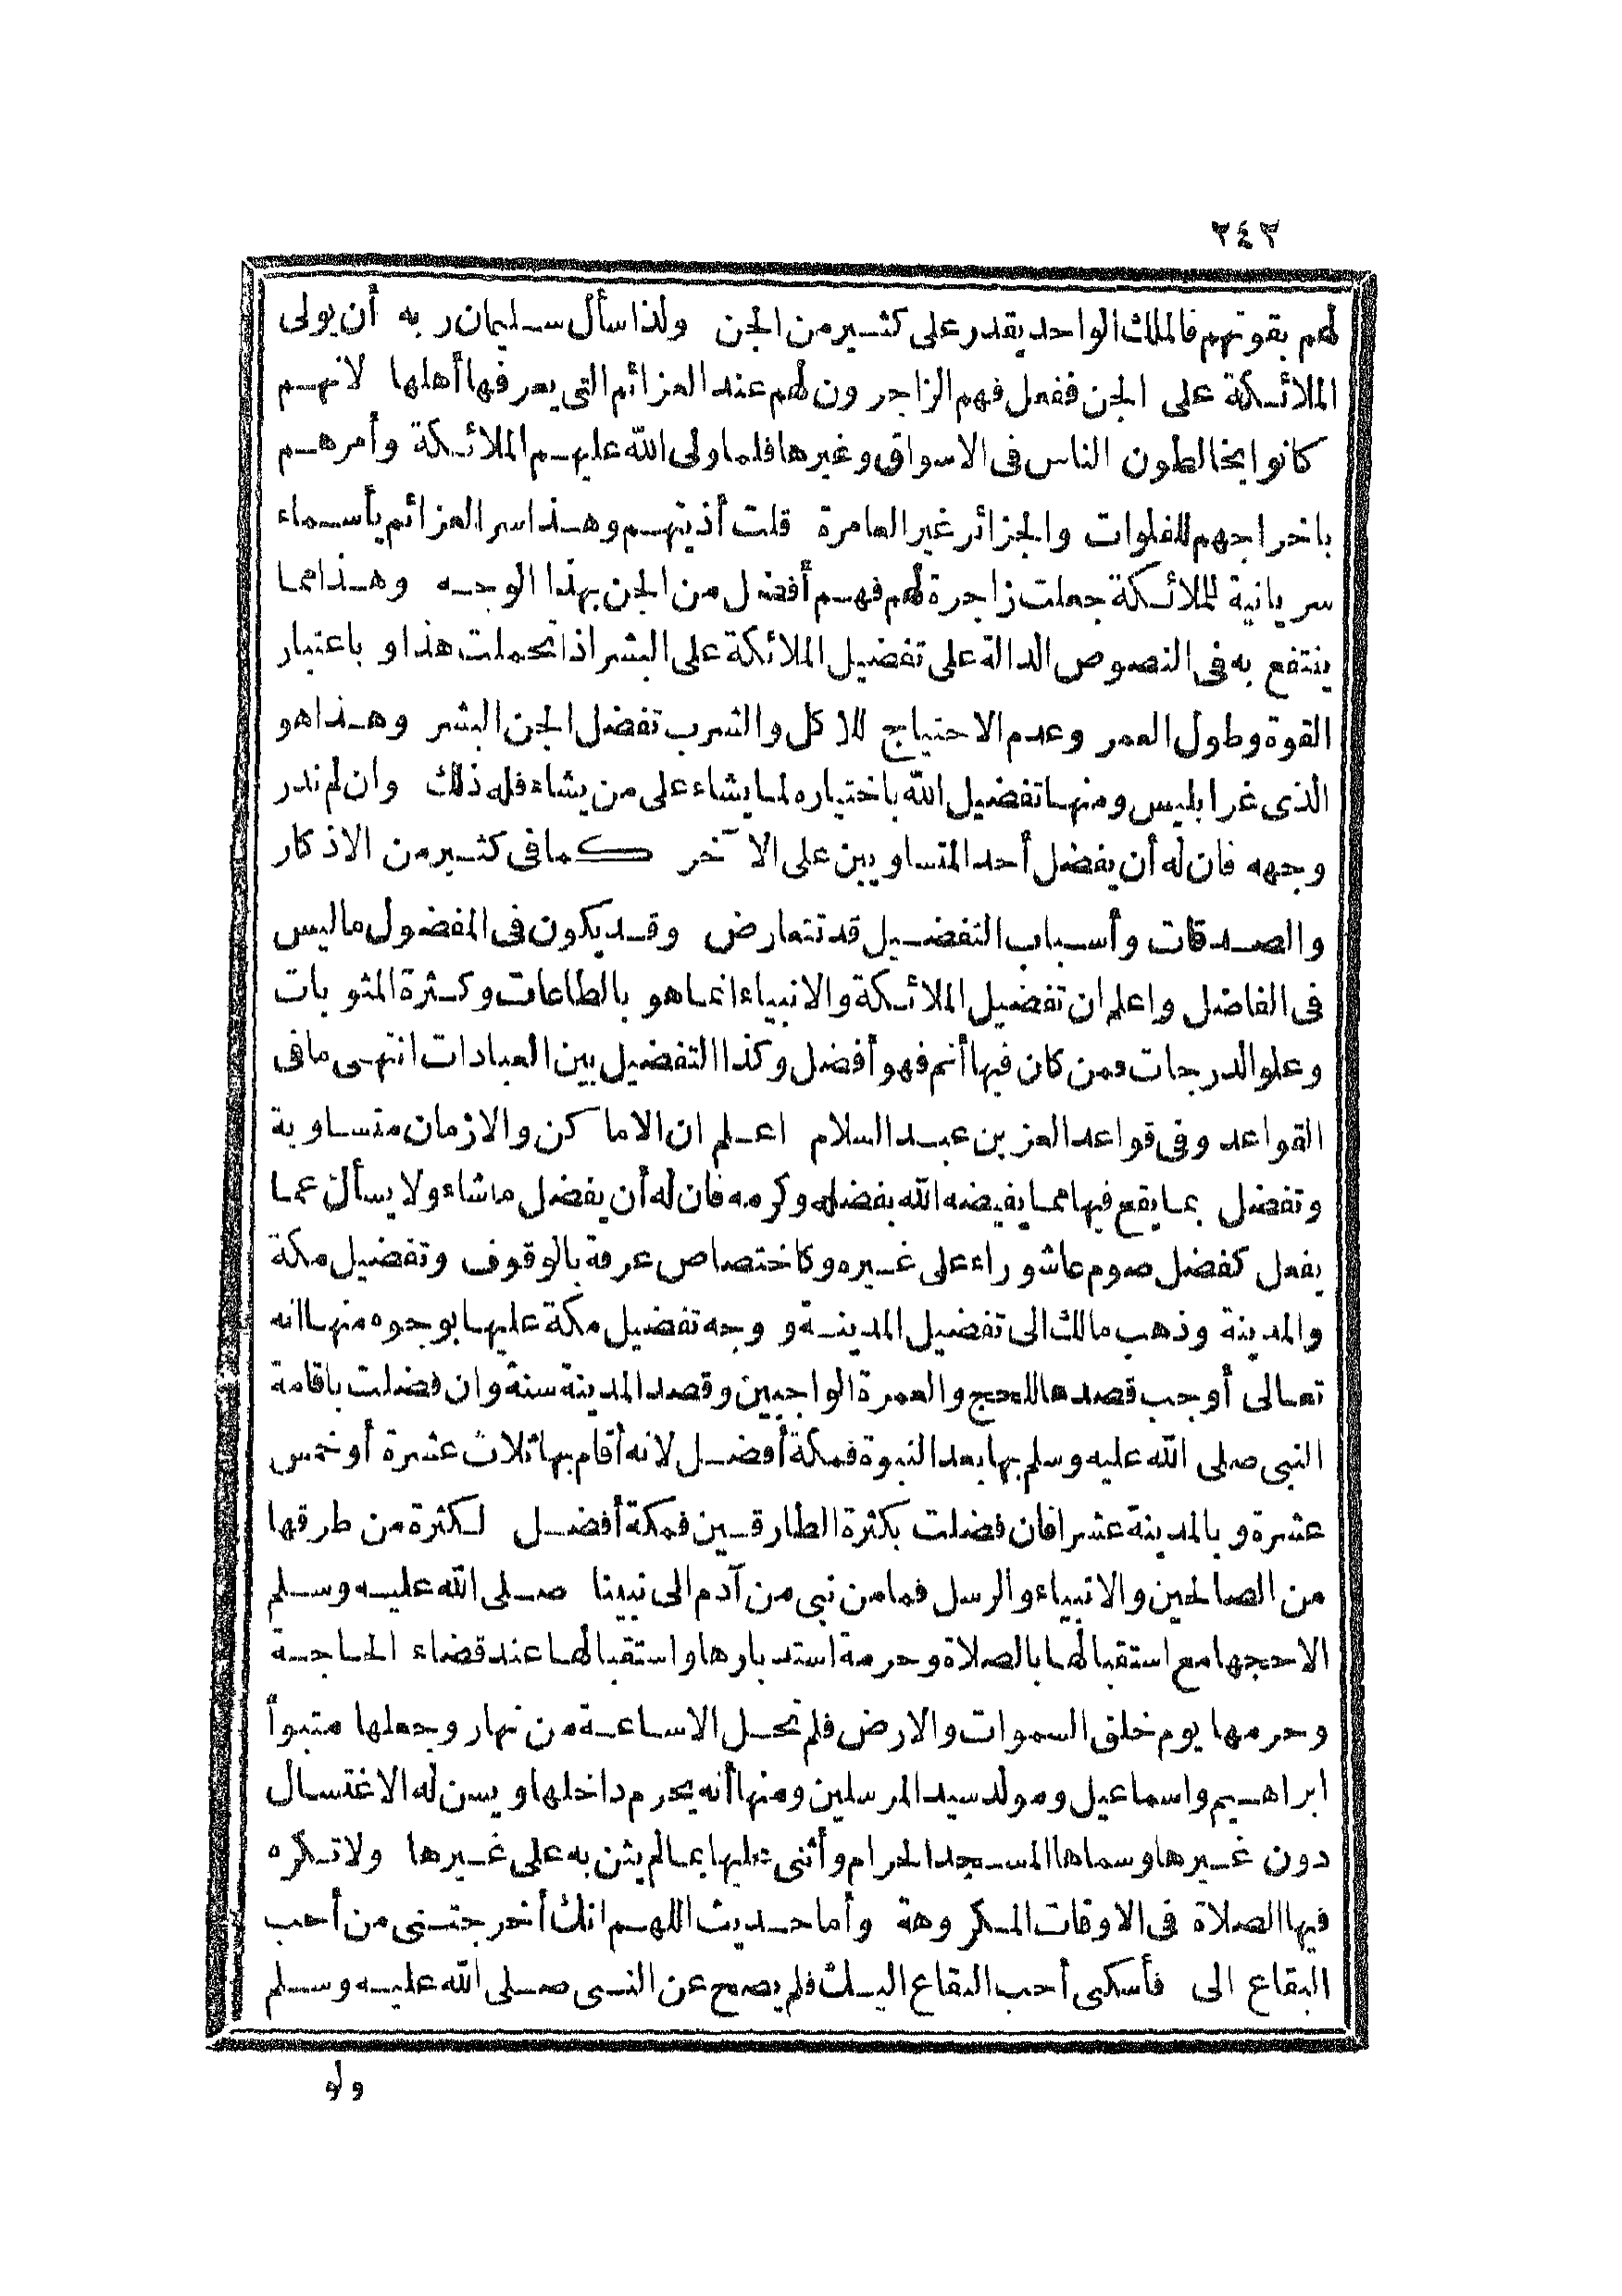 ٢٤٢
لهم بقوتهم فالملك الواحد يقدر على كثير من الجن ولذا سأل سليمان ربه أن يولى
الملائكة على الجن ففعل فهم الزاجرون لهم عند العزائم التى يعرفها أهلها لانهم
كانوا يخالطون الناس فى الاسواق وغيرها فلما ولى الله عليهم الملائكة وأمرهم
باخراجهم للفلوات والجزائر غير العامرة قلت أذيتهم وهذا سر العزائم بأسماء
سريانية للملائكة جعلت زاجرة لهم فهم أفضل من الجن بهذا الوجه وهذا مما
ينتفع به فى النصوص الدالة على تفضيل الملائكة على البشر اذا تحملت هذا و باعتبار
القوة وطول العمر وعدم الاحتياج للا كل والشرب تفضل الجن البشر وهذا هو
الذى غر ابليس ومنها تفضيل الله باختياره لما يشاء على من يشاء فله ذلك وان لم ندر
وجهه فان له أن يفضل أحد المتساويين على الآخر كما فى كثير من الاذكار
والصدقات وأسباب التفضيل قد تتعارض وقد يكون فى المفضول ما ليس
فى الفاضل واعلم ان تفضيل الملائكة والانبياء انما هو بالطاعات وكثرة المثوبات
وعلو الدرجات فمن كان فيها أتم فهو أفضل وكذا التفضيل بين العبادات انتهى ما فى
القواعد وفى قواعد العز بن عبد السلام اعلم ان الاماكن والازمان متساوية
وتفضل بما يقع فيها مما يفيضه الله بفضله وكرمه فان له أن يفضل ما شاء ولا يسأل عما
يفعل كفضل صوم عاشوراء على غيره وكاختصاص عرفة بالوقوف وتفضيل مكة
والمدينة وذهب مالك الى تفضيل المدينة و وجه تفضيل مكة عليها بوجوه منها انه
تعالى أوجب قصدها للحج والعمرة الواجبين وقصد المدينة سنة وان فضلت باقامة
النبى صلى الله عليه وسلم بها بعد النبوة فمكة أفضل لانه أقام بها ثلاث عشرة أو خمس
عشرة و بالمدينة عشرا فان فضلت بكثرة الطارقين فمكة أفضل لكثرة من طرقها
من الصالحين والانبياء والرسل فما من نبى من آدم الى نبينا صلى الله عليه وسلم
الا حجها مع استقبالها بالصلاة وحرمة استدبارها واستقبالها عند قضاء الحاجة
وحرمها يوم خلق السموات والارض فلم تحل الا ساعة من نهار وجعلها متبوأ
ابراهيم واسماعيل ومولد سيد المرسلين ومنها أنه يحرم داخلها و يسن له الاغتسال
دون غيرها وسماها المسجد الحرام وأثنى عليها بما لم يثن به على غيرها ولا تكره
فيها الصلاة فى الاوقات المكروهة وأما حديث اللهم انك أخرجتنى من أحب
البقاع الى فأسكنى أحب البقاع اليك فلم يصح عن النبى صلى الله عليه وسلم
ولو